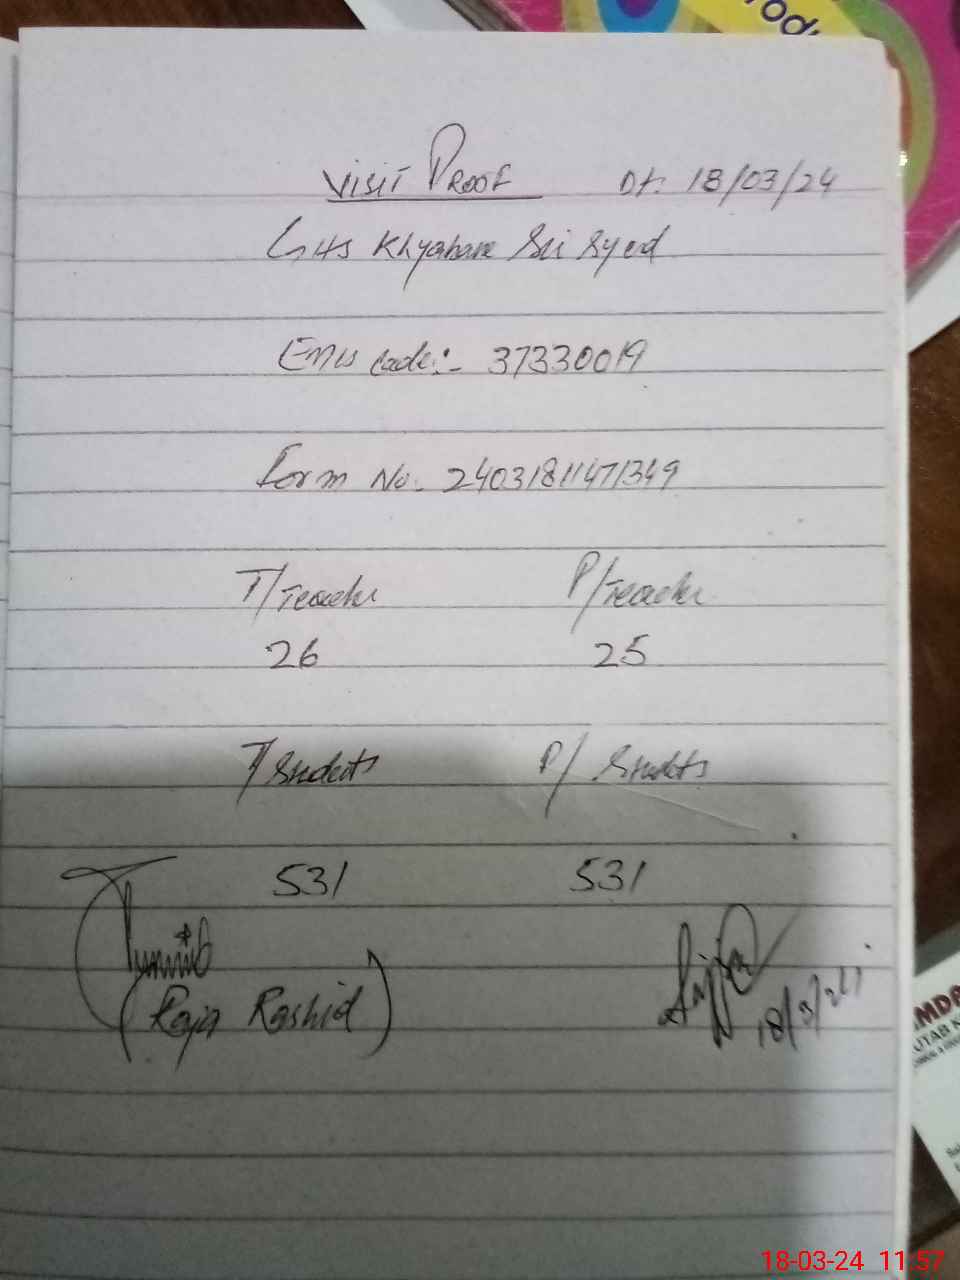 rod
VISIT PROOF Dt. 18/03/24
GHS Khyabane Sir Syed
Emis code:- 37330019
Form No. 24031811471349
T/Teacher P/Teacher
26 25
T/Students P/Students
531 531
(Raja Rashid)
18/3/24
MDA
UTAB
18-03-24 11:57